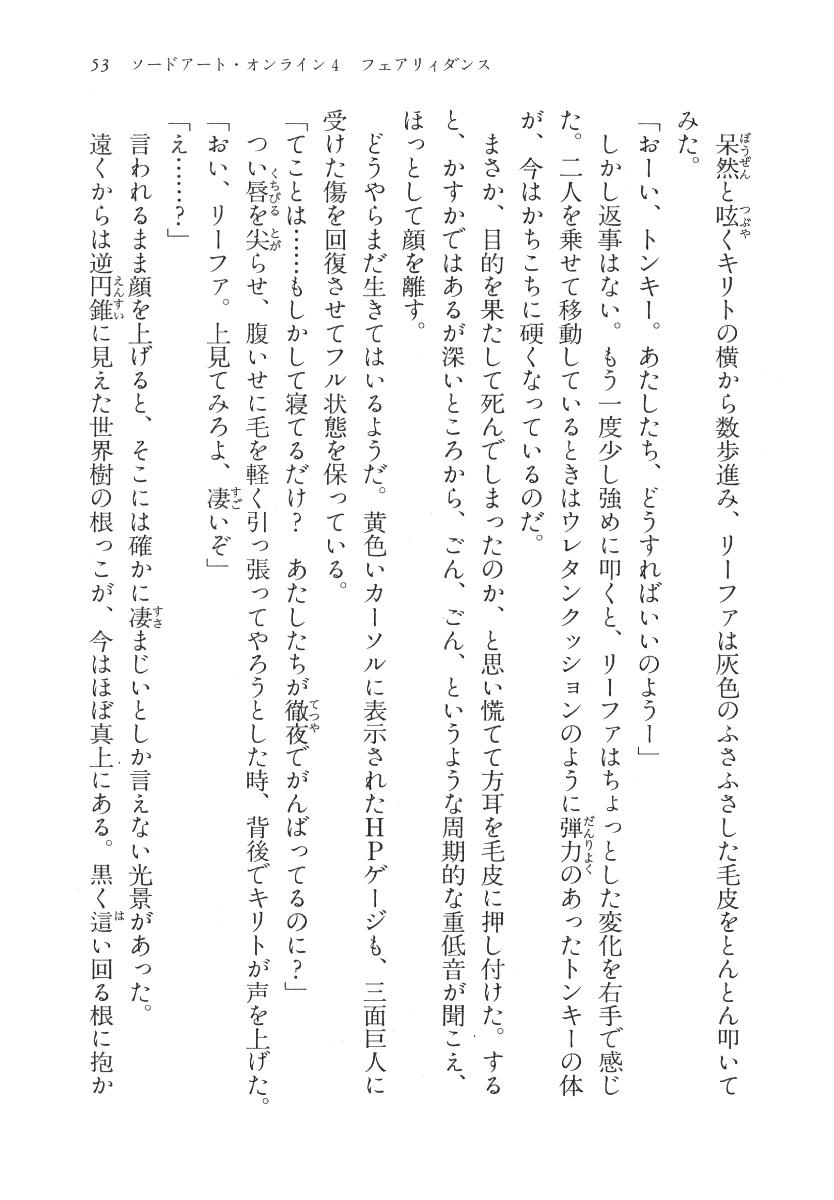 53　ソードアート・オンライン4　フェアリィダンス
　呆然と呟くキリトの横から数歩進み、リーファは灰色のふさふさした毛皮をとんとん叩いて
みた。
「おーい、トンキー。あたしたち、どうすればいいのようー」
　しかし返事はない。もう一度少し強めに叩くと、リーファはちょっとした変化を右手で感じ
た。二人を乗せて移動しているときはウレタンクッションのように弾力のあったトンキーの体
が、今はかちこちに硬くなっているのだ。
　まさか、目的を果たして死んでしまったのか、と思い慌てて方耳を毛皮に押し付けた。する
と、かすかではあるが深いところから、ごん、ごん、というような周期的な重低音が聞こえ、
ほっとして顔を離す。
　どうやらまだ生きてはいるようだ。黄色いカーソルに表示されたＨＰゲージも、三面巨人に
受けた傷を回復させてフル状態を保っている。
「てことは……もしかして寝てるだけ？　あたしたちが徹夜でがんばってるのに？」
　つい唇を尖らせ、腹いせに毛を軽く引っ張ってやろうとした時、背後でキリトが声を上げた。
「おい、リーファ。上見てみろよ、凄いぞ」
「え……？」
　言われるまま顔を上げると、そこには確かに凄まじいとしか言えない光景があった。
　遠くからは逆円錐に見えた世界樹の根っこが、今はほぼ真上にある。黒く這い回る根に抱か